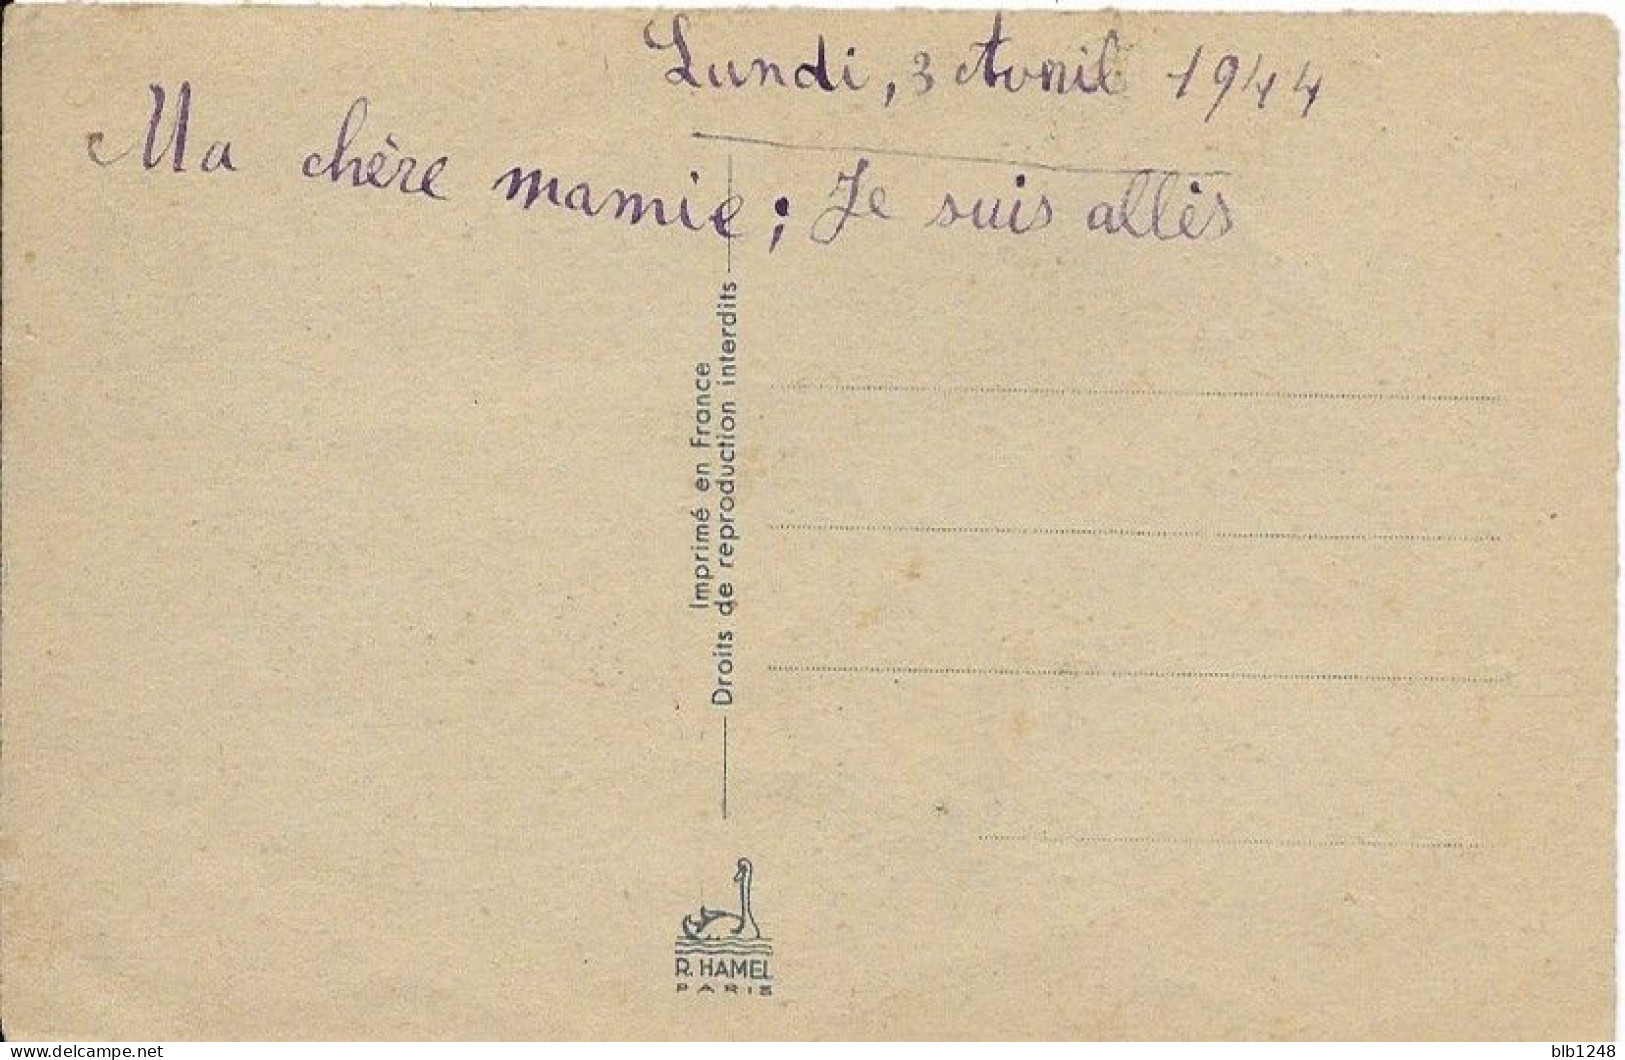 Lundi, 3 Avril 1944
Ma chère mamie ; Je suis allès
Imprimé en France
Droits de reproduction interdits
R. HAMEL
PARIS
delcampe.net
blb1248